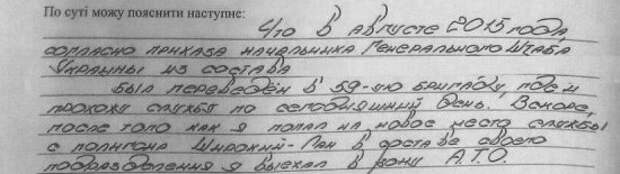 По суті можу пояснити наступне:
Что в августе 2015 года
согласно приказа начальника Генерального Штаба
Украины из состава
был переведён в 59-ую бригаду, где и
прохожу службу по сегодняшний день. Вскоре,
после того как я попал на новое место службы
с полигона Широкий-Лан в составе своего
подразделения я выехал в зону А.Т.О.